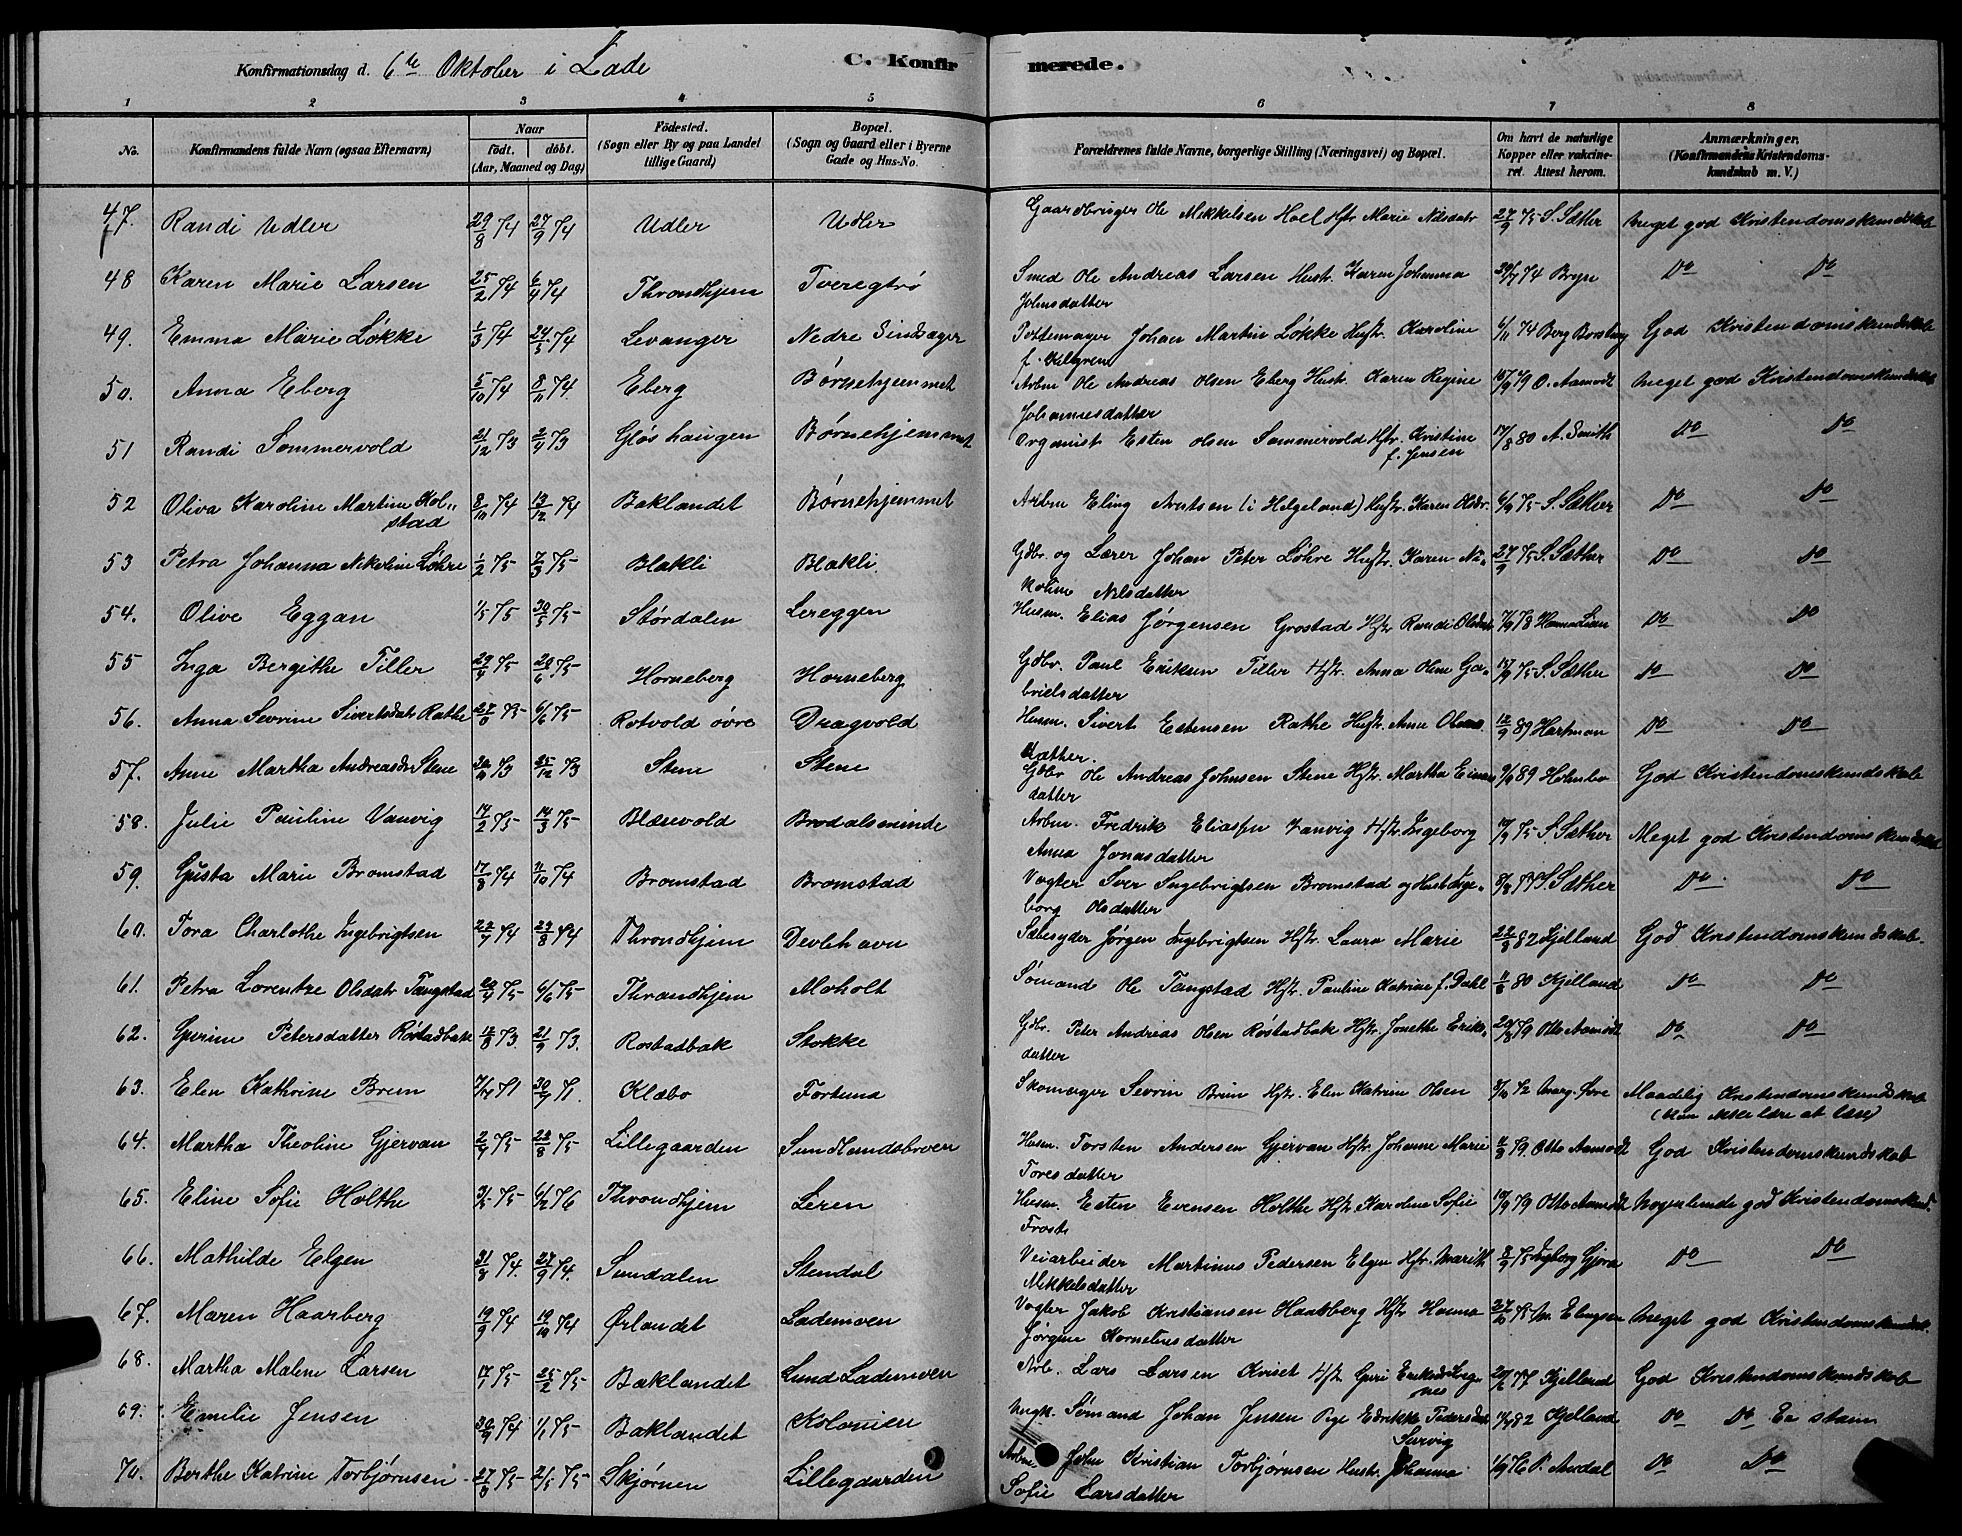 Konfirmationsdag d. 6te Oktober i Lade C. Konfirmerede.
1 2 3 4 5 6 7 8
No. Konfirmandens fulde Navn (ogsaa Efternavn) Naar født. døbt. (Aar, Maaned og Dag) Fødested. (Sogn eller By og paa Landet tillige Gaard) Bopæl. (Sogn og Gaard eller i Byerne Gade og Hus-No. Forældrenes fulde Navne, borgerlige Stilling (Næringsvei) og Bopæl. Om havt de naturlige Kopper eller vakcineret. Attest herom. Anmærkninger. (Konfirmandens Kristendomskundskab m. V.)
47. Randi Udler 29/8 74 27/9 74 Udler Udler Gaardbruger Ole Mikkelsen Hoel Hstr Marie Nilsdatr 27/9 75 S. Sæther Meget god Kristendomskundskab
48 Karen Marie Larsen 25/2 74 6/4 74 Throndhjem Tveregtrø Smed Ole Andreas Larsen Hustr. Karen Johanna 74 Bryn Do Do
Johnsdatter
49. Emma Marie Løkke 1/3 74 24/5 74 Levanger Nedre Pottemager Johan Martin Løkke Hustr. Karoline 6/11 74 Berg God Kristendomskundskab
50. Anna Eberg 5/10 74 8/11 74 Eberg Børnehjemmet Arbm Ole Andreas Olsen Eberg Hustr. Karen Regine 79 O. Aamodt Meget god Kristendomskundskab
Johannesdatter
51 Randi Sommervold 21/12 73 73 Gløshaugen Børnehjemmet Organist Esten Olsen Sommervold Hstr. Kristine 17/8 80 A. Smith Do Do
f. Jensen
52 Oliva Karoline Martine Kol- 8/10 74 13/12 74 Baklandet Børnehjemmet Arbm Eling Arntsen (i Helgeland) Hustr. Karen Olsdr. 6/9 75 S. Sæther Do Do
stad
53 Petra Johanna Nikoline Løhre 1/2 75 7/3 75 Blakli Blakli Gdbr. og Lærer Johan Peter Løhre Hustr. Karen Ni- 27/9 75 S. Sæther Do Do
koline Nilsdatter
54. Olive Eggan 1/5 75 30/5 75 Størdalen Lereggen Husm. Elias Jørgensen Grostad Hstr Randi 78 Do Do
55 Inga Bergithe Tiller 29/4 75 20/6 75 Horneberg Horneberg Gdbr. Paul Eriksen Tiller Hstr. Anna Oline Ga- 75 S. Sæther Do Do
brielsdatter
56. Anna Sevrine Sivertsdatr Rathe 75 6/6 75 Rotvold øvre Dragvold Husm. Sivert Estensen Rathe Hustr. Anne 12/9 89 Hartman Do Do
57. Anne Martha Andreasdr Stene 73 25/12 73 Stene Stene Gdbr Ole Andreas Johnsen Stene Hstr. Martha 89 Holmbo God Kristendomskundskab
datter
58. Julie Pauline Vanvig 17/2 75 14/3 75 Blæsevold Brodalsminde Arbm. Fredrik Vanvig Hstr. Ingeborg 75 S. Sæther Meget god Kristendomskundskab
Anna Jonasdatter
59. Gusta Marie Bromstad 17/8 74 11/10 74 Bromstad Bromstad Vogter Iver Ingebrigtsen Bromstad og Hustr Inge- S. Sæther Do Do
borg Olsdatter
60. Tora Charlothe Ingebrigtsen 22/7 74 23/8 74 Throndhjem Devlehavn Sæbesyder Jørgen Ingebrigtsen Hstr. Laura Marie 82 Kjelland God Kristendomskundskab.
61. Petra Lorentze Olsdatr Tangstad 20/4 75 6/6 75 Throndhjem Moholt Sømand Ole Tangstad Hstr. Pauline Katrine f. Dahl 80 Kjelland Do Do
62. Gurine Petersdatter Røstadbak 73 21/9 73. Rostadbak Stokke Gdbr. Peter Andreas Olsen Røstadbak Hstr. Jonethe Eriks- 79 Otto Aamodt Do Do
datter
63. Elen Kathrine Brun 71 30/7 71. Klæbo Fortuna Skomager Sevrin Brun Hstr. Elen Katrine Olsen 72 Maadelig Kristendomskundskab
(kan ikke lære at læse)
64. Martha Theoline Gjervan 2/7 75 22/8 75 Lillegaarden Husm. Torsten Andersen Gjervan Hstr. Johanne Marie 79 Otto Aamodt God Kristendomskundskab
Toresdatter
65. Eline Sofie Holthe 75 76 Throndhjem Leren Husm. Esten Evensen Holthe Hstr. Karoline Sofie 79 Otto Aamodt Nogenlunde god Kristendomskund.
Frost
66. Mathilde Elgen 31/8 74. 27/9 74. Sundalen Stendal Veiarbeider Martinus Pedersen Elgen Hstr. Marith 75 Do Do
Mikkelsdatter
67. Maren Haarberg 19/9 74 19/10 74 Ørlandet Lademoen Vogter Jakob Kristiansen Haarberg Hstr Hanna 75 M. Elingsen Meget god Kristendomskundsk.
Jørgine Kornelinsdatter
68. Martha Maline Larsen 17/1 75 25/2 75 Baklandet Lund Lademoen Arb. Lars Larsen Kviset Hstr Guri 77 Kjelland God Kristendomskundskab
69. Emelie Jensen 30/9 74 1/1 75 Baklandet Kolonien Ungk. Sømand Johan Jensen Pige Pedersdatr 82 Kjelland Do Do
70. Berthe Katrine Torbjørnsen 75 2/5 75 Skjørnen Lillegaarden Arbm John Kristian Torbjørnsen Hustr. Johanna 76 P. Aurdal Do Do
Sofie Larsdatter